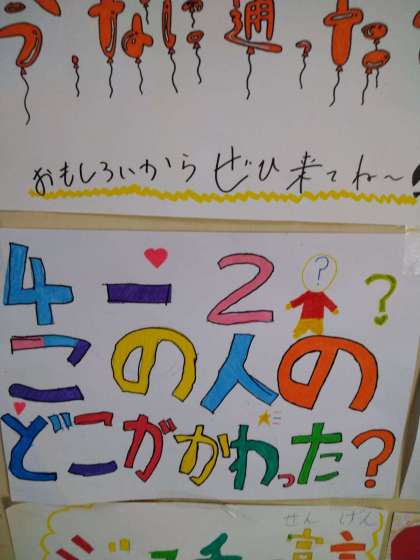 今、なに通った
おもしろいから ぜひ来てね〜
4-2
?
?
この人の
どこがかわった?
せんげん
宣言